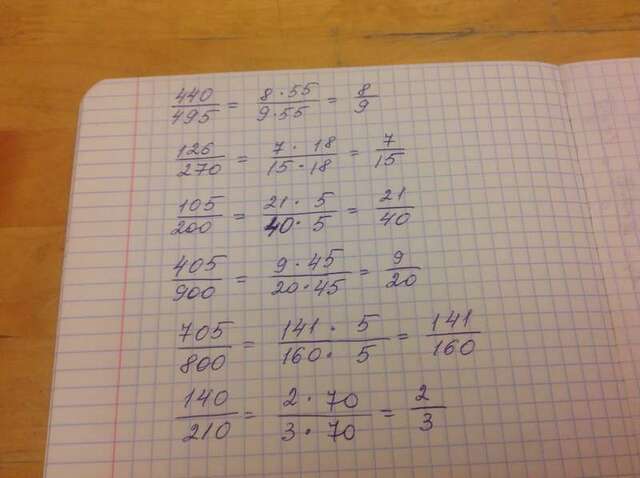 440/495 = 8·55/9·55 = 8/9
126/270 = 7·18/15·18 = 7/15
105/200 = 21·5/40·5 = 21/40
405/900 = 9·45/20·45 = 9/20
705/800 = 141·5/160·5 = 141/160
140/210 = 2·70/3·70 = 2/3